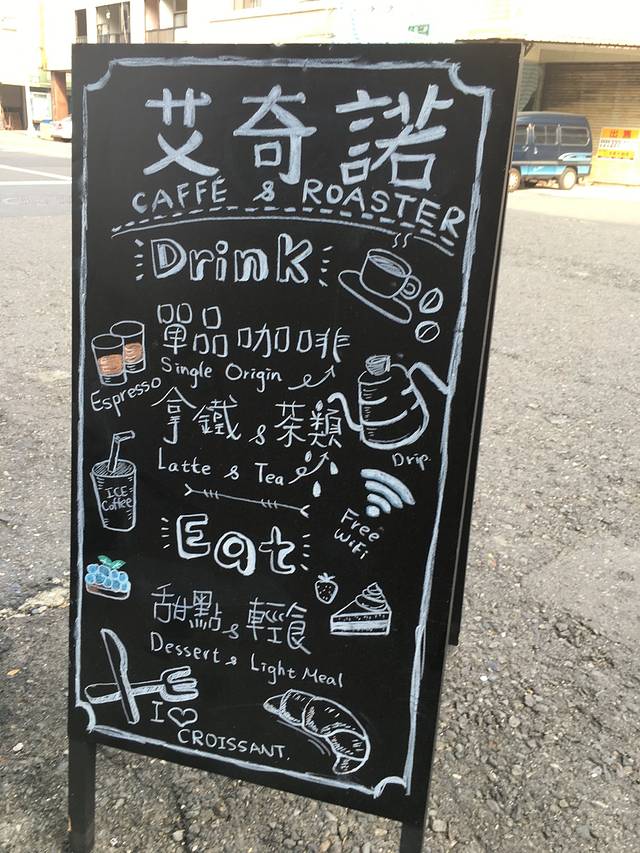 艾奇諾
CAFFÉ & ROASTER
Drink
單品咖啡
Single Origin
Espresso
拿鐵 & 茶類
Drip.
Latte & Tea
ICE
Coffee
Free
WiFi
Eat
甜點 & 輕食
Dessert & Light Meal
I ♡
CROISSANT.